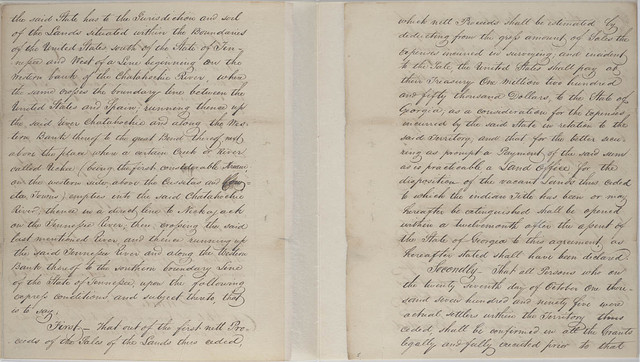 the said State has to the Jurisdiction and soil
of the Lands situated within the Boundaries
of the United States south of the State of Ten-
nessee and West of a Line beginning on the
Western bank of the Chatahochie River, where
the same crosses the boundary line between the
United States and Spain, running thence up
the said river Chatahochie and along the Wes-
tern Bank thereof to the great Bend thereof next
above the place where a certain Creek or River
called Uchee (being the first considerable Stream
on the western side, above the Cussetas and
Towns) empties into the said Chatahochie
River, thence in a direct line to Nickajack
on the Tennessee River, then crossing the said
last mentioned River and thence running up
the said Tennessee River and along the Western
Bank thereof to the southern boundary Line
of the State of Tennessee, upon the following
express conditions and subject thereto, that
is to say:
First— That out of the first nett Pro-
ceeds of the Sales of the Lands thus ceded,
which nett Proceeds shall be estimated by
deducting from the gross amount of Sales the
expences incurred in surveying and incident
to the sale, the United States shall pay at
their Treasury One million two hundred
and fifty thousand Dollars, to the State of
Georgia, as a consideration for the expenses
incurred by the said State in relation to the
said Territory, and that for the better secu-
ring as prompt a Payment, of the said sum
as is practicable a Land Office for the
disposition of the vacant Lands thus ceded
to which the indian Title has been or may
hereafter be extinguished shall be opened
within a twelvemonth after the assent by
the State of Georgia to this agreement, as
hereafter stated shall have been declared.
Secondly— That all Persons who on
the twenty seventh day of October One thou-
sand seven hundred and ninety five were
actual settlers within the Territory thus
ceded, shall be confirmed in all the Grants
legally and fully executed prior to that